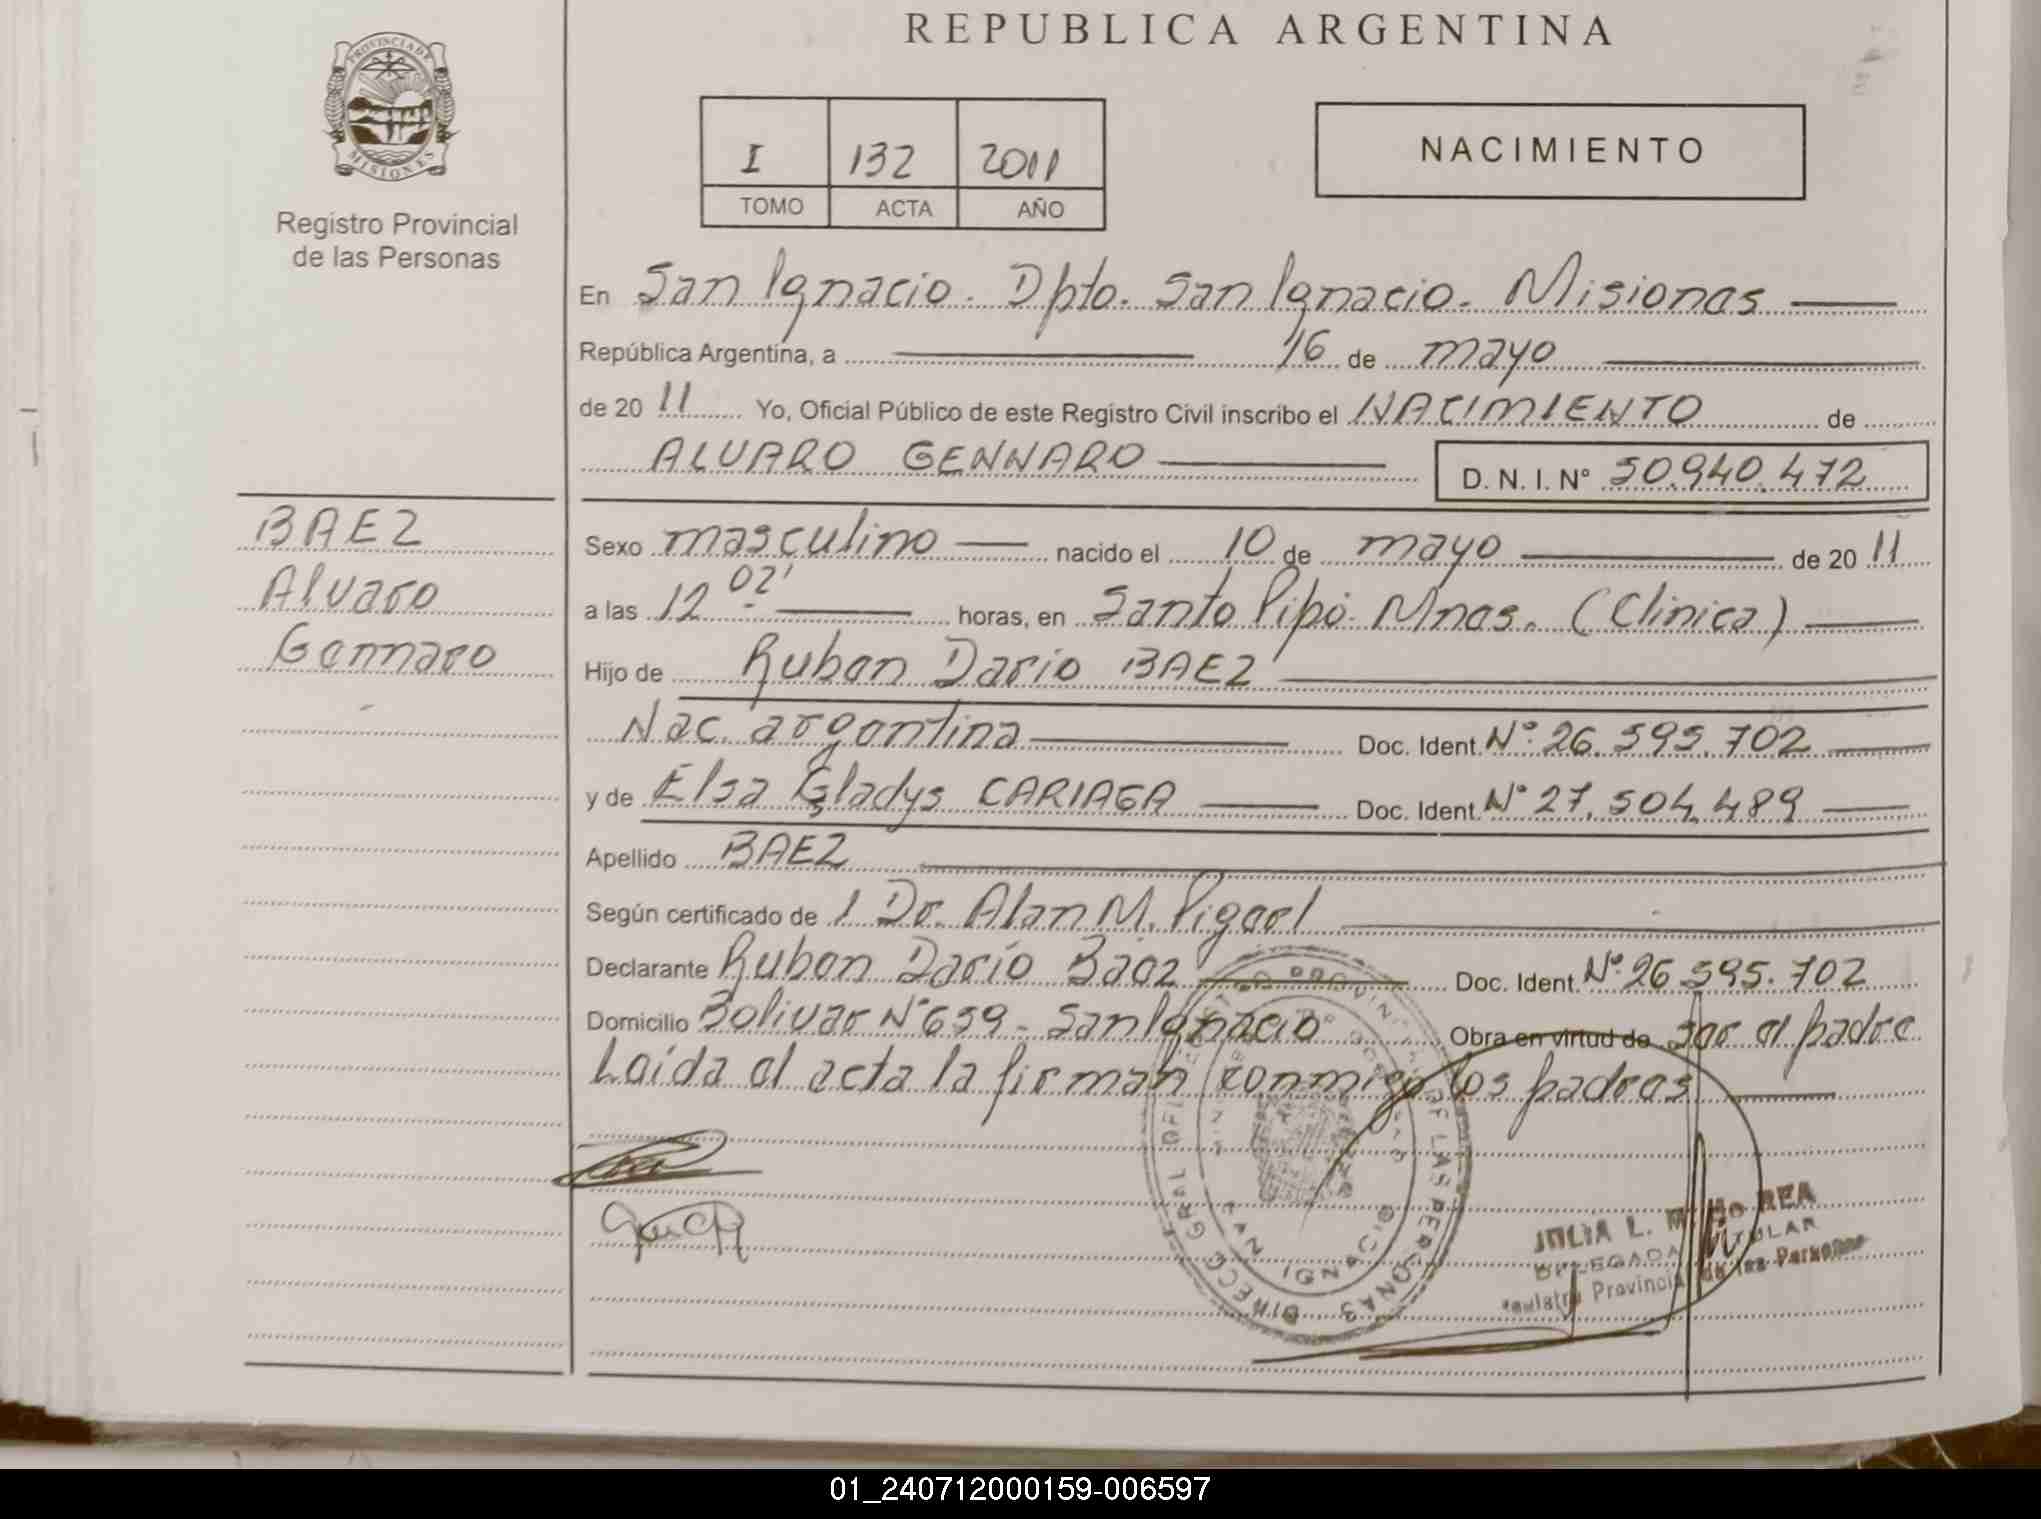 REPUBLICA ARGENTINA
PROVINCIA DE
MISIONES
Registro Provincial
de las Personas
I 132 2011
TOMO ACTA AÑO
NACIMIENTO
En San Ignacio. Dpto. San Ignacio. Misiones
República Argentina, a 16 de mayo
de 20 11 Yo, Oficial Público de este Registro Civil inscribo el NACIMIENTO de
ALVARO GENNARO D. N. I. Nº 50.940.472
BAEZ
Alvaro
Gennaro
Sexo masculino nacido el 10 de mayo de 20 11
a las 12 02' horas, en Santo Pipó. Mnes. (Clínica)
Hijo de Ruben Dario BAEZ
Nac. argentina Doc. Ident. Nº 26.595.702
y de Elsa Gladys CARIAGA Doc. Ident. Nº 27.504.489
Apellido BAEZ
Según certificado de l Dr. Alan M.
Declarante Ruben Darío Báez Doc. Ident. Nº 26.595.702
Domicilio Bolivar Nº 659 - San Ignacio Obra en virtud de ser el padre
Leída el acta la firman conmigo los padres
SAN IGNACIO
JULIA L.
DELEGADA TITULAR
Provincial de las Personas
01_240712000159-006597